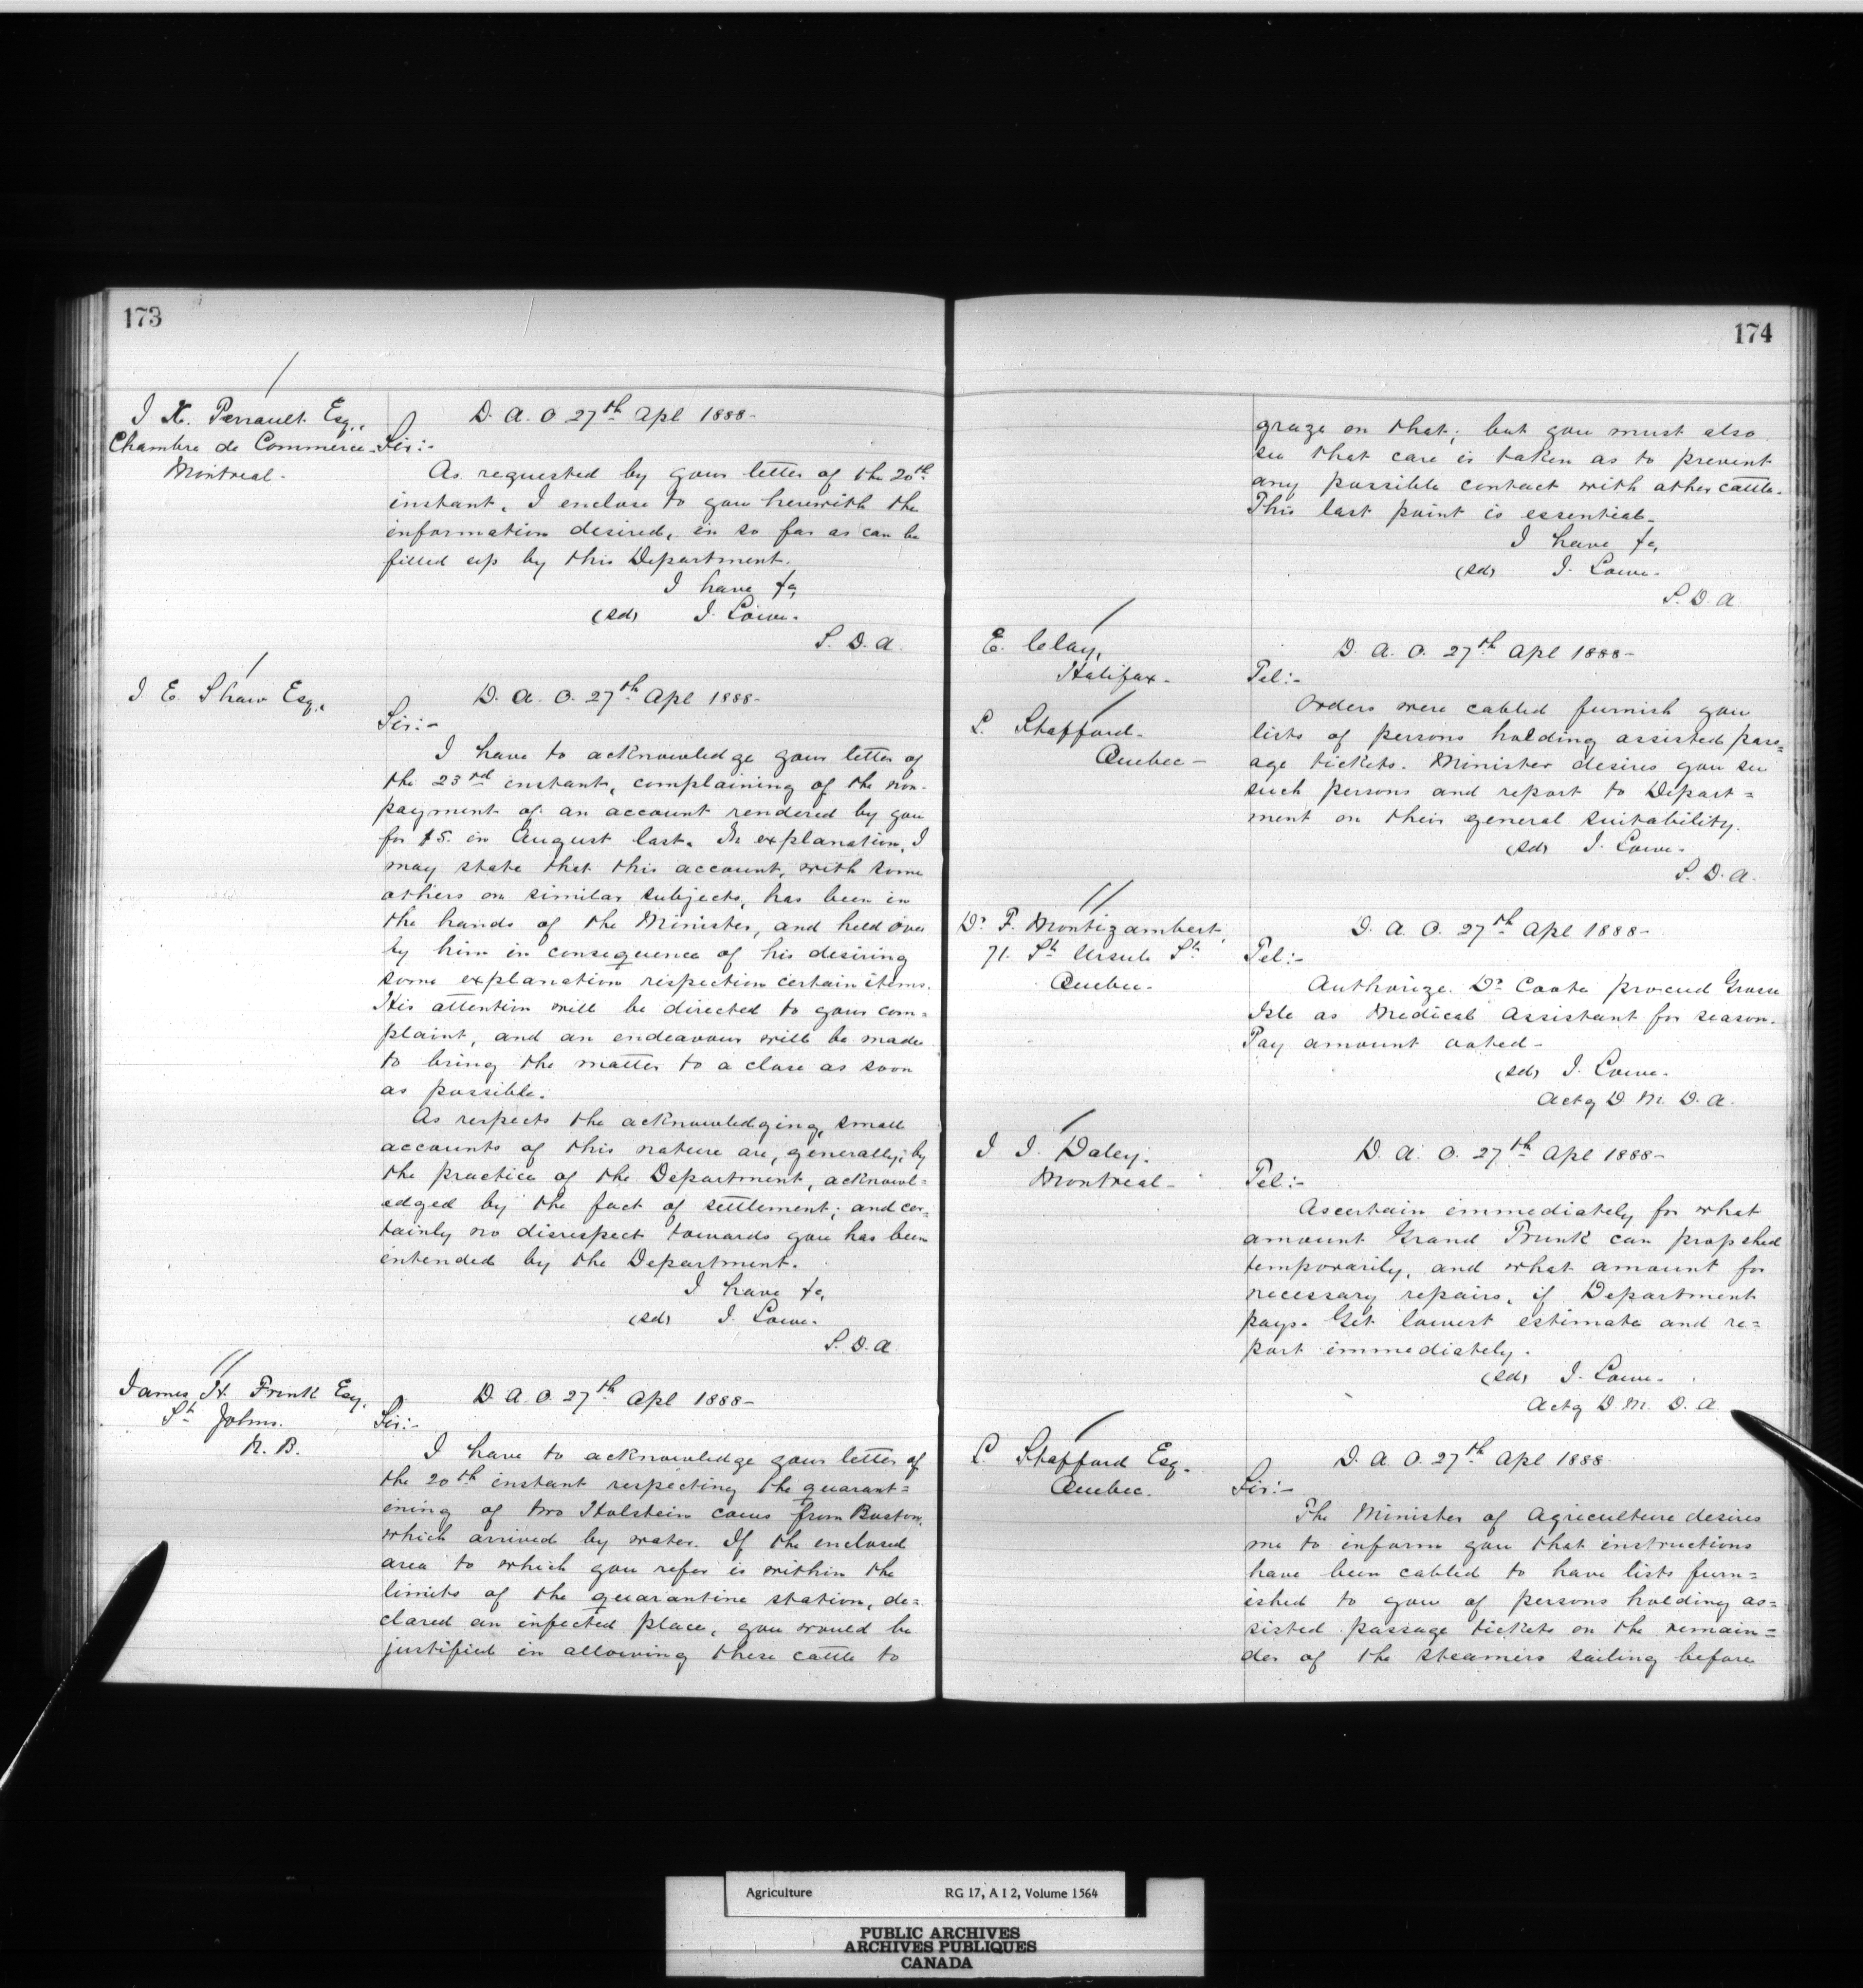 173
J X. Perrault Esq.,
Chambre de Commerce.
Montreal.
D. A. O 27th Apl 1888-
Sir:-
As requested by your letter of the 20th
instant, I enclose to you herewith the
information desired, in so far as can be
filled up by this Department.
I have &c,
(sd) J. Lowe.
S. D. A.
J E. Shaw Esq.,
D. A. O. 27th Apl 1888-
Sir:-
I have to acknowledge your letter of
the 23rd instant, complaining of the non-
payment of an account rendered by you
for $5. in August last. In explanation, I
may state that this account, with some
others on similar subjects, has been in
the hands of the Minister, and held over
by him in consequence of his desiring
some explanation respection certain items.
His attention will be directed to your com=
plaint, and an endeavour will be made
to bring the matter to a close as soon
as possible.
As respects the acknowledging, small
accounts of this nature are, generally, by
the practice of the Department, acknowl=
edged by the fact of settlement; and cer=
tainly no disrespect towards you has been
intended by the Department.
I have &c,
(sd) J. Lowe.
S. D. A
James H. Frink Esq.
St Johns.
N. B.
D. A. O. 27th Apl 1888-
Sir:-
I have to acknowledge your letter of
the 20th instant respecting the quarant=
ining of two Holstein cows from Boston,
which arrived by water. If the enclosed
area to which you refer is within the
limits of the quarantine station, de=
clared an infected place, you would be
justified in allowing these cattle to
174
graze on that; but you must also
see that care is taken as to prevent
any possible contact with other cattle.
This last point is essential-
I have &c,
(sd) J. Lowe.
S. D. A.
E. Clay,
Halifax.
L. Stafford.
Quebec-
D. A. O. 27th Apl 1888-
Tel:-
Orders were cabled furnish you
lists of persons holding assisted pass=
age tickets. Minister desires you see
such persons and report to Depart=
ment on their general suitability.
(sd) J. Lowe.
S. D. A.
Dr F. Montizambert,
71. St Ursule St
Quebec.
D. A. O. 27th Apl 1888-
Tel:-
Authorize Dr Coote proceed Grosse
Isle as Medical Assistant for season.
Pay amount voted-
(sd) J. Lowe.
Actg D. M. D. A.
J J. Daley.
Montreal-
D. A. O. 27th Apl 1888-
Tel:-
Ascertain immediately for what
amount Grand Trunk can prop shed
temporarily, and what amount for
necessary repairs, if Department
pays. Get lowest estimate and re=
port immediately.
(sd) J. Lowe.
Actg D. M. D. A.
L. Stafford Esq.
Quebec.
D. A. O. 27th Apl 1888
Sir:-
The Minister of Agriculture desires
me to inform you that instructions
have been cabled to have lists furn=
ished to you of persons holding as=
sisted passage tickets on the remain=
der of the steamers sailing before
Agriculture RG 17, A I 2, Volume 1564
PUBLIC ARCHIVES
ARCHIVES PUBLIQUES
CANADA